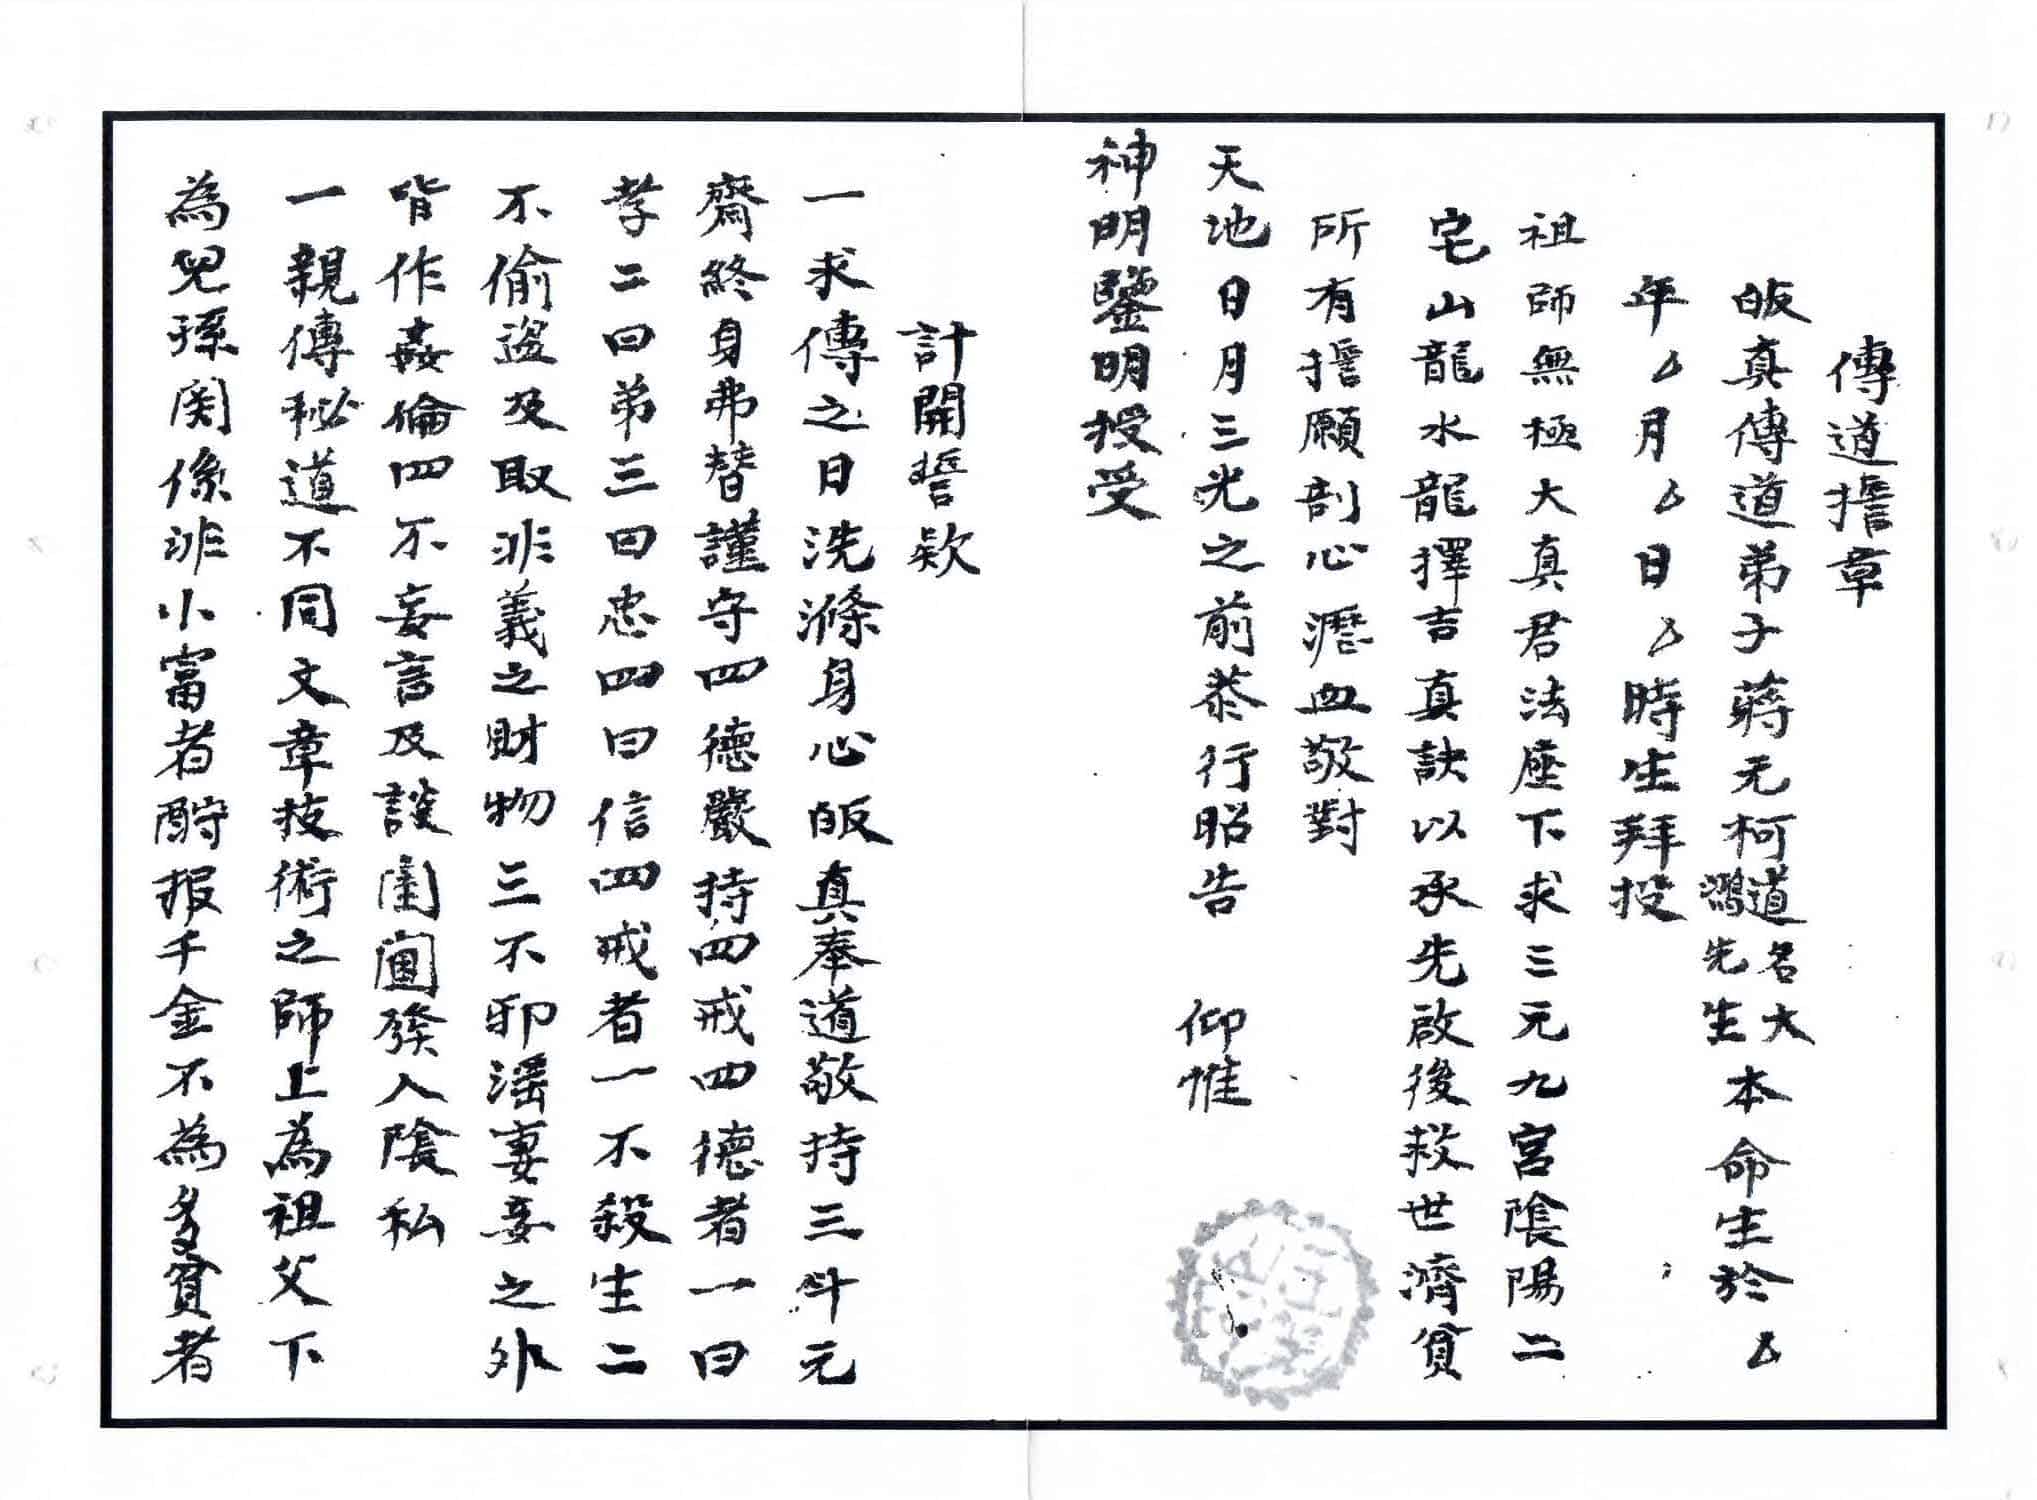 傳道擔章
皈真傳道弟子蔣元柯道名大鴻先生本命生於厶
年厶月厶日厶時生拜投
祖師無極大真君法座下求三元九宮陰陽二
宅山龍水龍擇吉真訣以承先啟後救世濟貧
所有擔願剖心瀝血敬對
天地日月三光之前恭行昭告　仰惟
神明鑒明授受
計開誓欵
一求傳之日洗滌身心皈真奉道敬持三斗元
齋終身弗替謹守四德嚴持四戒四德者一曰
孝二曰弟三曰忠四曰信四戒者一不殺生二
不偷盜及取非義之財物三不邪淫妻妾之外
皆作姦倫四不妄言及談閨閫發人陰私
一親傳秘道不同文章技術之師上為祖父下
為兒孫関係非小富者酧报千金不為多貧者